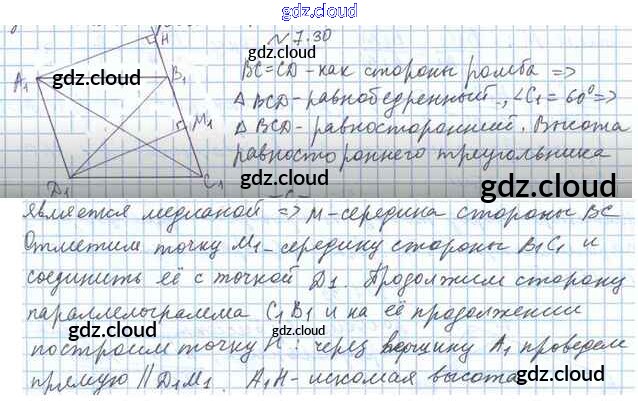 gdz.cloud
№ 7.30
H
gdz.cloud
A1 gdz.cloud B1
BC=CD - как стороны ромба =>
△ BCD - равнобедренный, ∠C1 = 60° =>
M1
△ BCD - равносторонний. Высота
равностороннего треугольника
D1 C1
gdz.cloud
является медианой => M - середина стороны BC
Отметим точку M1 - середину стороны B1C1 и
gdz.cloud
соединить её с точкой D1. Продолжим сторону
параллелограмма C1B1 и на её продолжении
gdz.cloud gdz.cloud
построим точку H : через вершину A1 проведем
прямую || D1M1. A1H - искомая высота
gdz.cloud